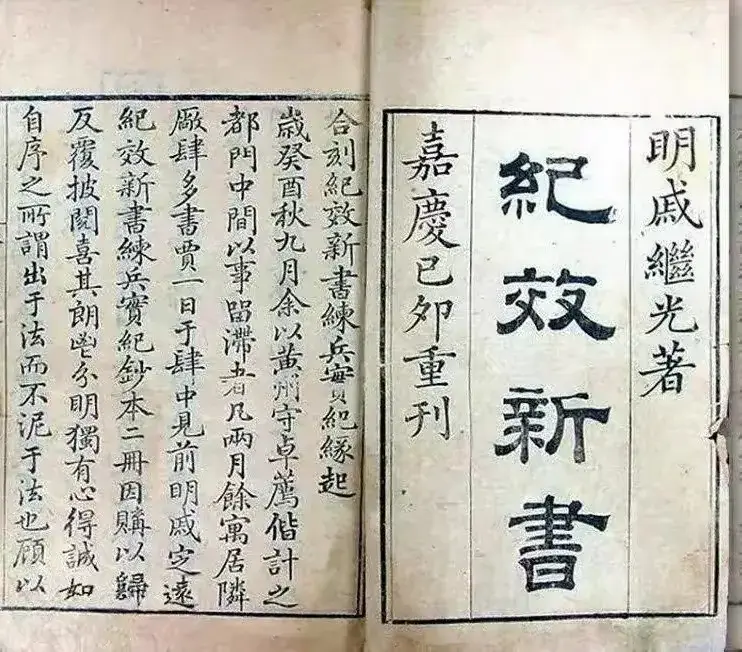 明戚繼光著
紀效新書
嘉慶己卯重刊
合刻紀效新書練兵實紀緣起
歲癸酉秋九月余以黃州守卓薦偕計之
都門中間以事留滯者凡兩月餘寓居隣
厰肆多書賈一日于肆中見前明戚定遠
紀效新書練兵實紀鈔本二冊因購以歸
反覆披閱喜其朗鬯分明獨有心得誠如
自序之所謂出于法而不泥于法也顧以